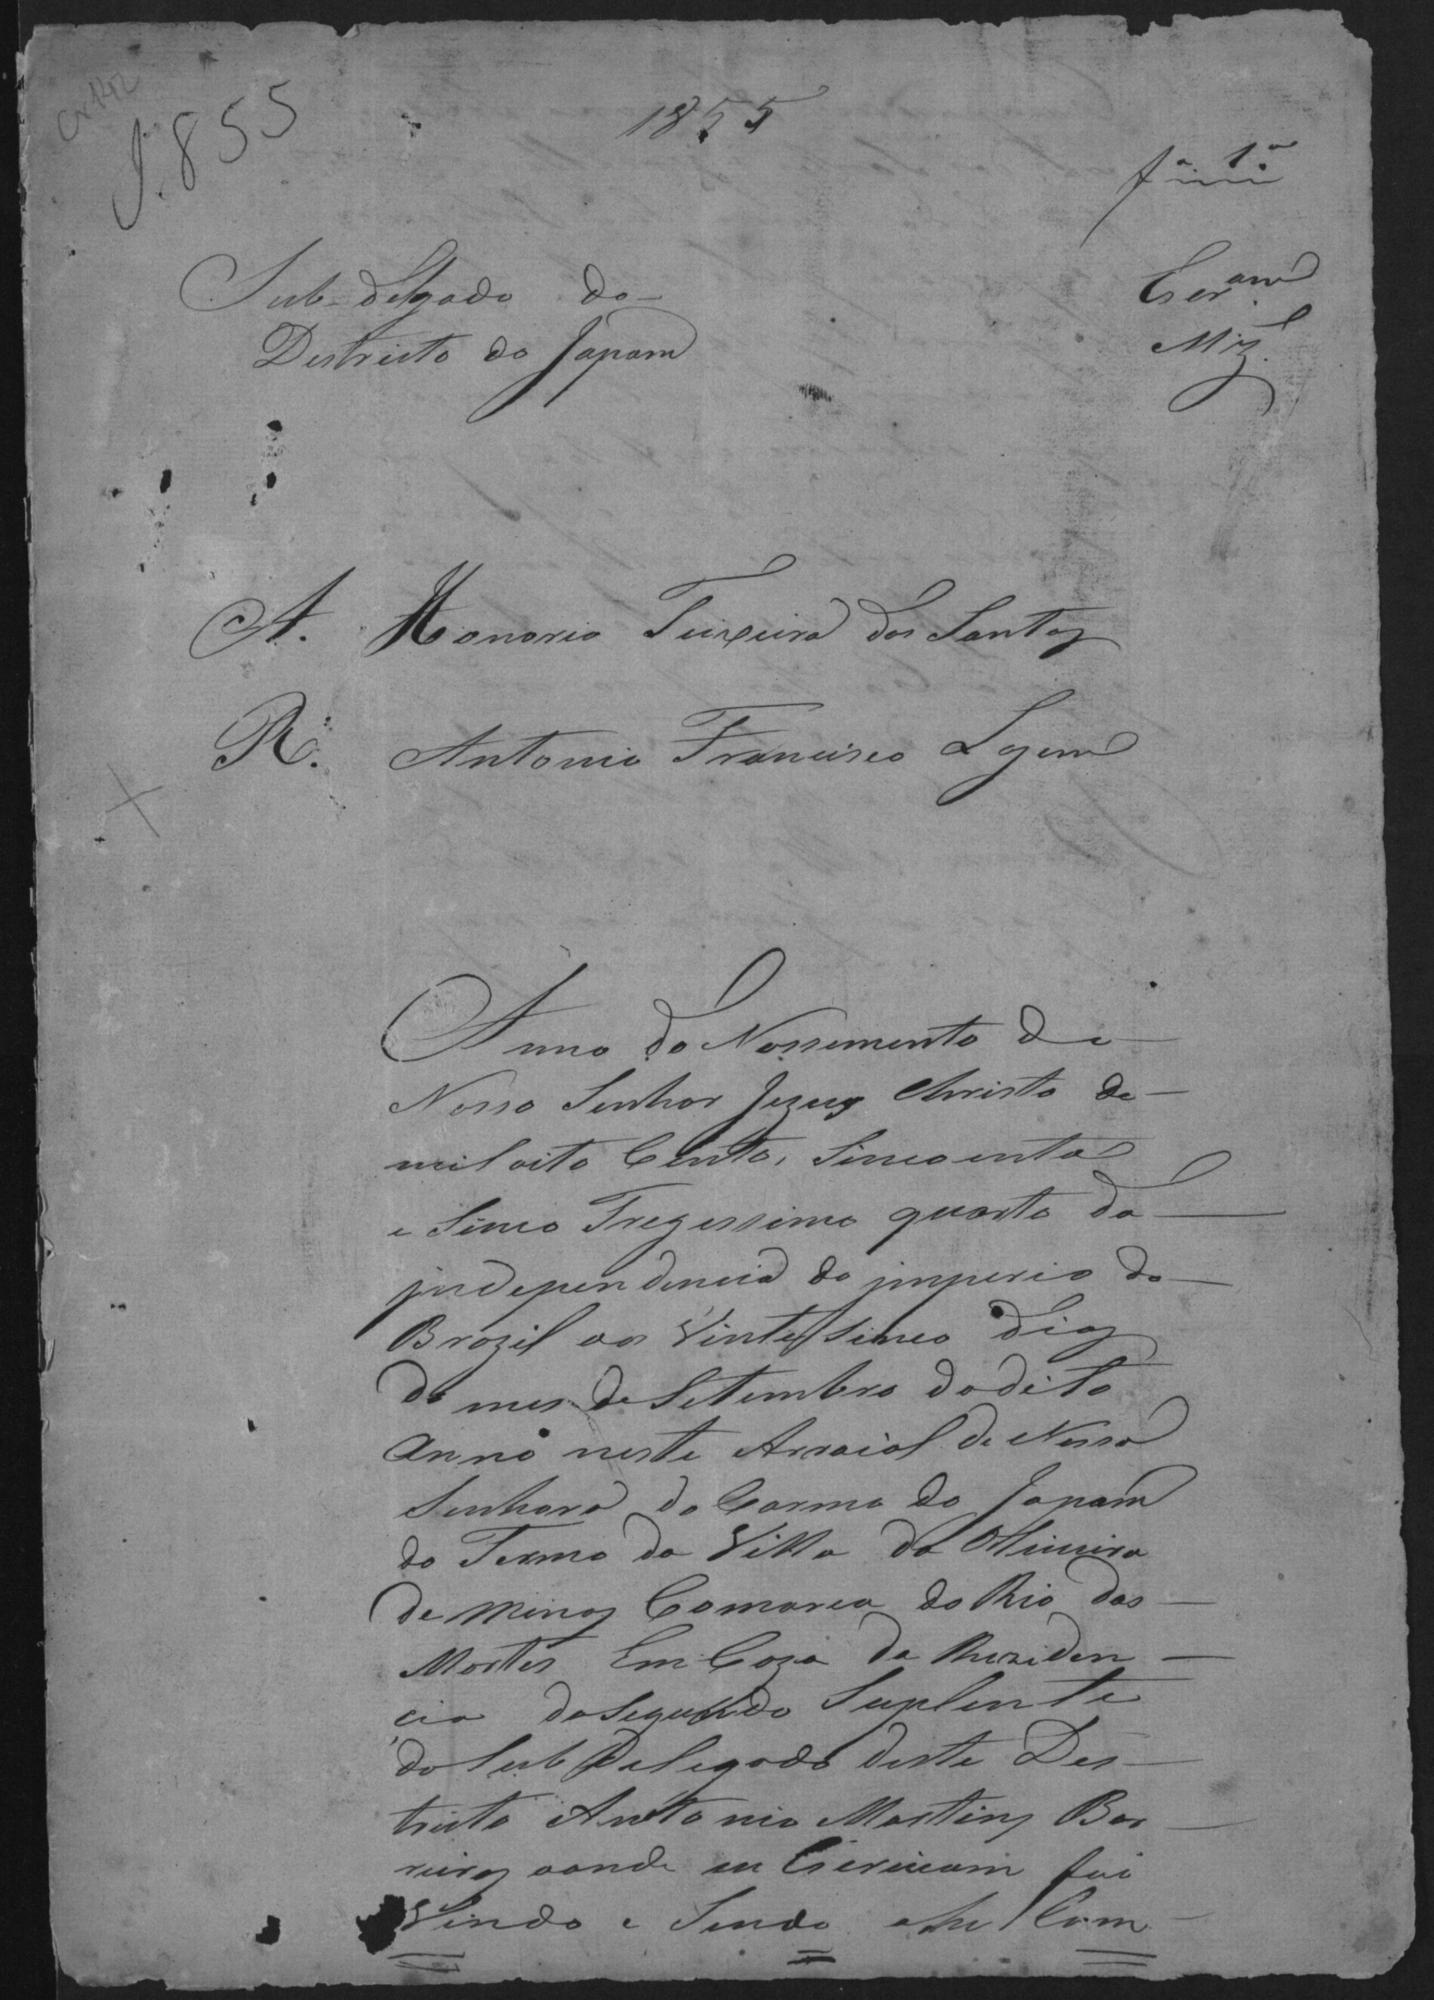 Cx 142
J. 855
1855
fª 1ª
Escram
Miz
Sub-delgado do
Destricto do Japam
A. Honorio Teixeira dos Santos
R. Antonio Francisco
Anno do Nassemento de
Nosso Senhor Jezus Christo de
mil oito Cento, Sincoenta
e Sinco Tregessimo quarto da
independencia do imperio do
Brazil aos Vinte Sinco dias
do mes de Setembro do dito
anno neste Arraial de Nossa
Senhora do Carmo do Japam
do Termo da Villa da Oliveira
de Minas Comarca do Rio das
Mortes Em Caza da Reziden
cia do Segundo Suplente
do Sub Delegado deste Des
tricto Antonio Martins Bar
reiros aonde eu Escrivam fui
Vindo e Sendo ahi Com